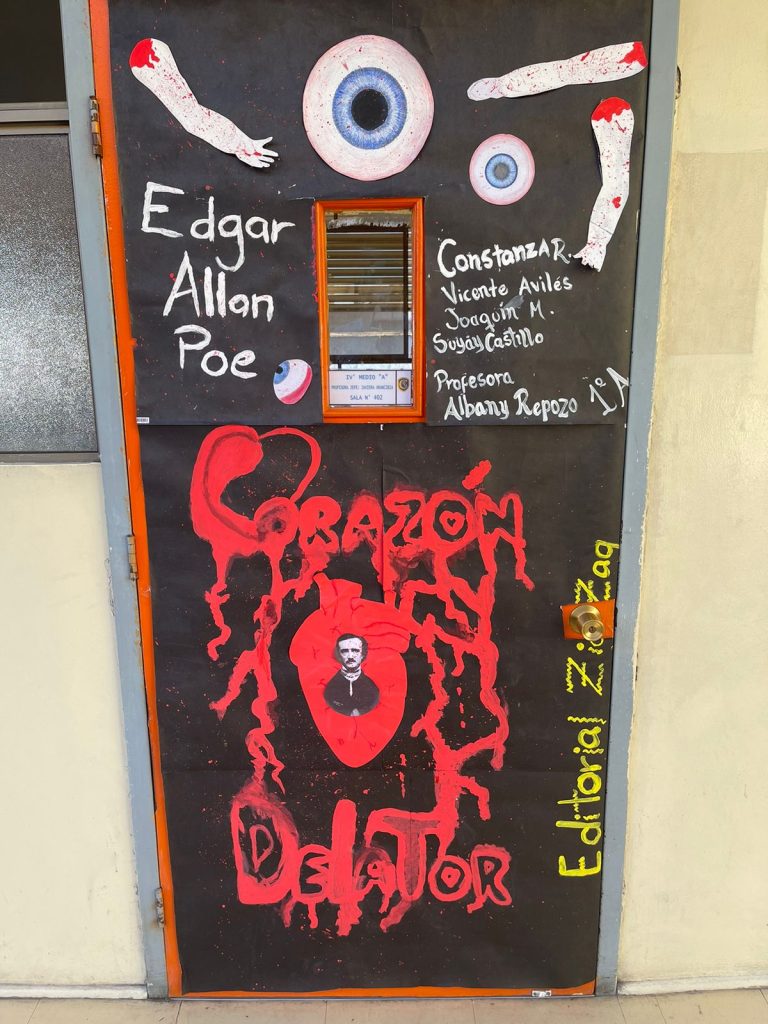 Edgar
Allan
Poe
Constanza R.
Vicente Avilés
Joaquín M.
Suyáy Castillo
Profesora
Albany Repozo 1°A
IV° MEDIO "A"
SALA N° 402
CORAZÓN
DELATOR
Editorial Zig Zag